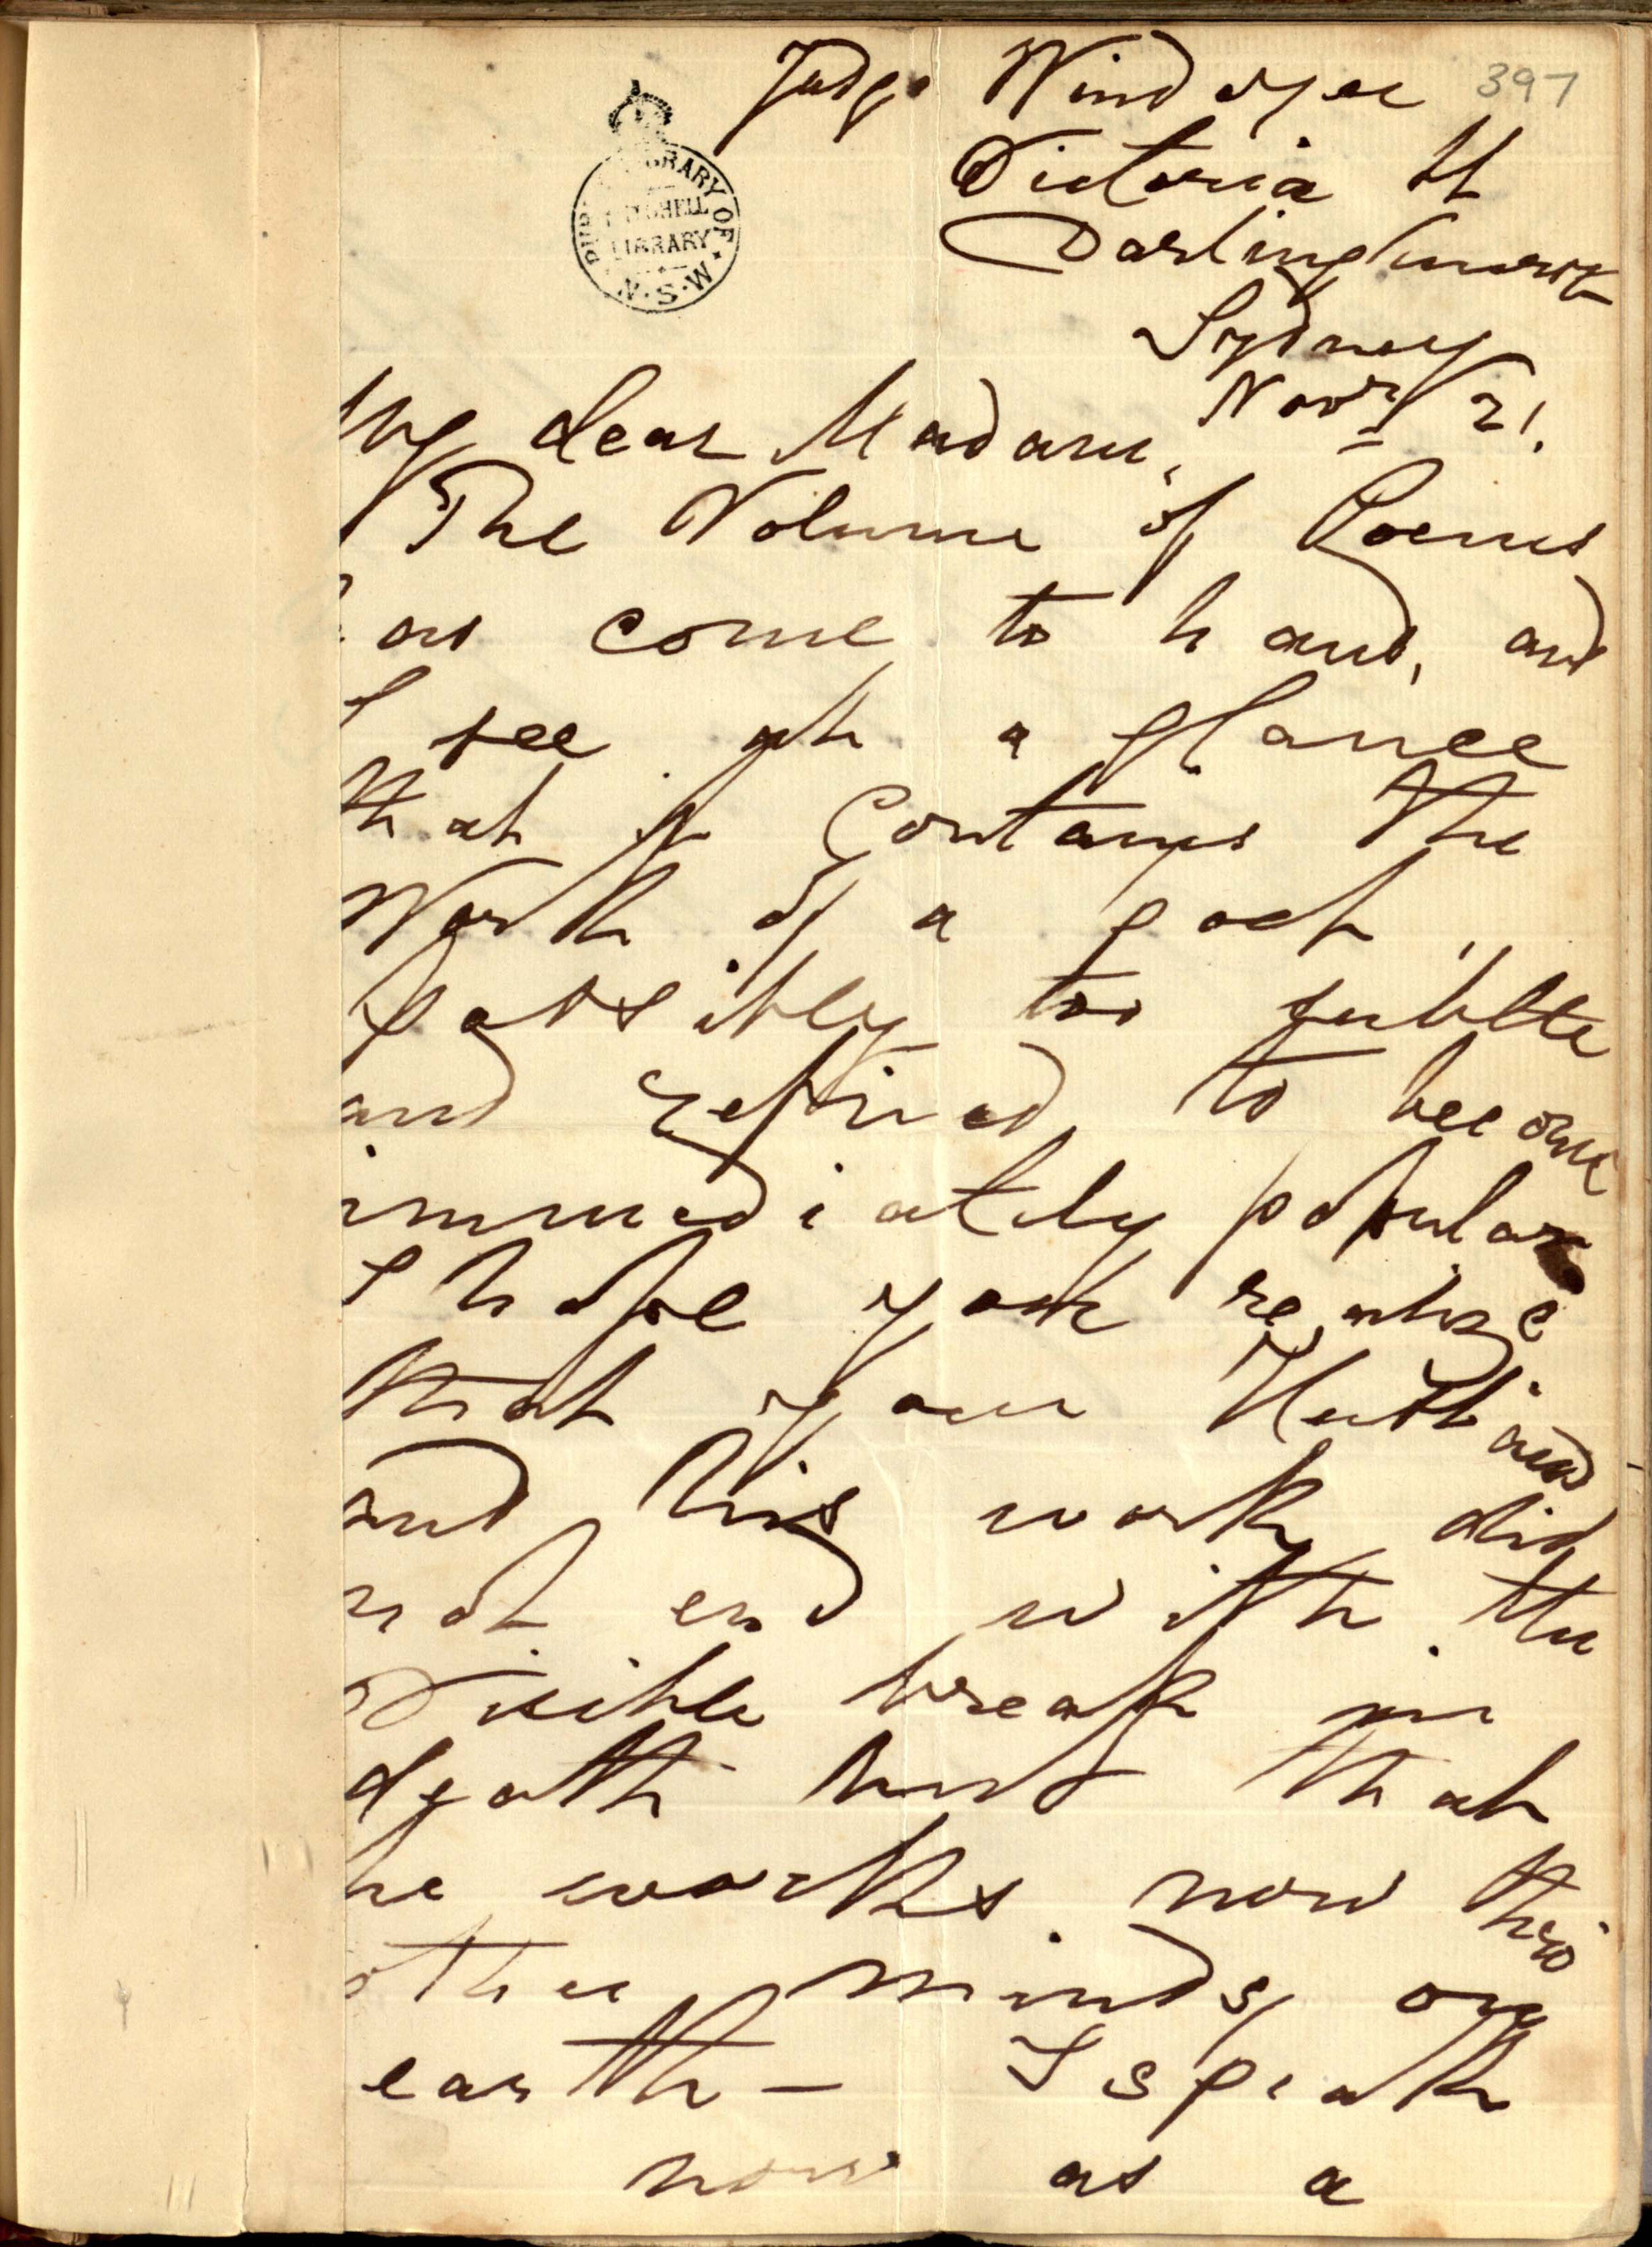 397
Judge Windeyer
Victoria St
Darlinghurst
Sydney
PUBLIC LIBRARY OF
MITCHELL
LIBRARY
N·S·W·
Novr 21.
My dear Madam,
The Volume of Poems
has come to hand, and
I see at a glance
that it Contains the
Work of a poet,
possibly too subtle
and refined to become
immediately popular
I hope you realize
that your Husband
and his work did
not end with the
Visible break in
death but that
he works now thro
other minds on
earth — I speak
now as a